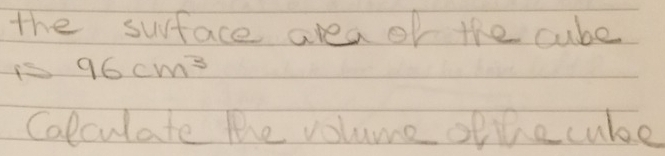 the surface area of the cube
is 96 cm³
Calculate the volume of the cube